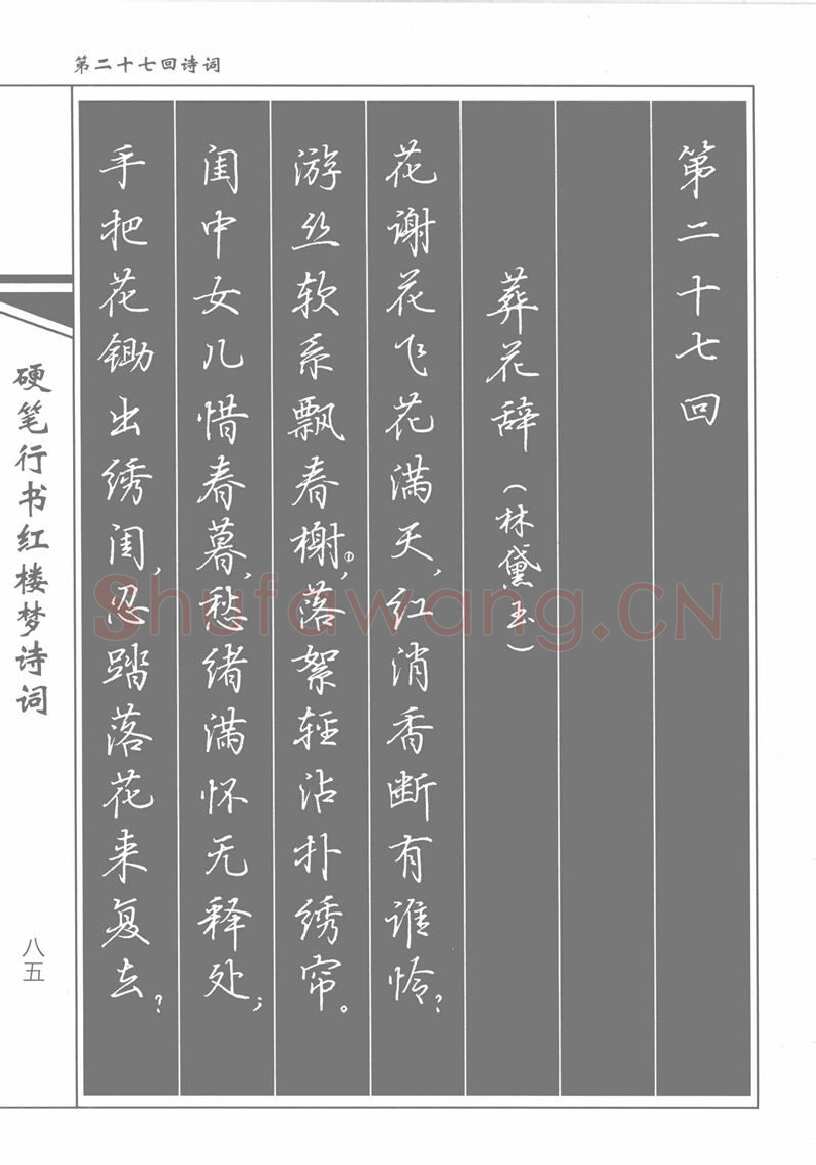 第二十七回诗词
第二十七回
葬花辞（林黛玉）
花谢花飞花满天，红消香断有谁怜？
游丝软系飘春榭①，落絮轻沾扑绣帘。
闺中女儿惜春暮，愁绪满怀无释处；
手把花锄出绣闺，忍踏落花来复去？
硬笔行书红楼梦诗词
八五
Shufawang.CN